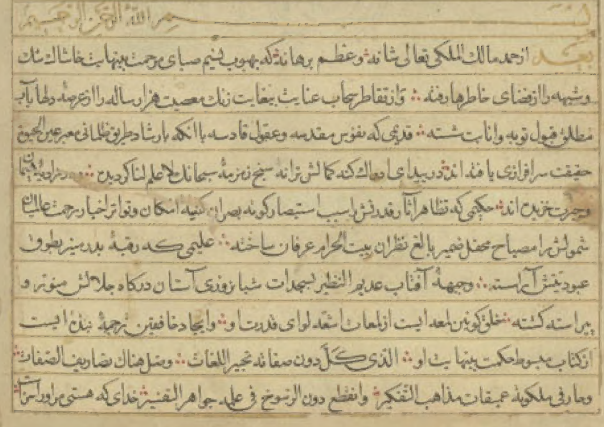 بسم الله الرحمن الرحیم
بعد از حمد مالک الملکی تعالی شانه وعظم برهانه که بهبوب نسیم صبای مرحمت بینهایت خاشاک شک
وشبهه را از فضای خاطرها رفته وز تقاطر سحاب عنایت بیغایت زنک معصیت هزار ساله را از عرصهٔ دلها بآب
مطلق قبول توبه وانابت شسته قدیمی که نفوس مقدسه وعقول قادسه با آنکه بارشاد طریق ظلمانی عین الحیوة
حقیقت سرافرازی یافته اند در بیدای ادراک کنه کمالش ترانه سنج زمزمهٔ سبحانک لا علم لنا کردیده
وحیرت خزیده اند حکیمی که تظاهر آثار قدرتش باسباب استبصار کونه بصران کنبه امکان وتواتر اخبار مرحمت
شمولش را مصباح محفل ضمیر بالغ نظران بیت الحرام عرفان ساخته علیمی که رقبهٔ بدر منیر بطوق
عبودیتش آراسته وجبههٔ آفتاب عدیم النظیر بسجدات شبانروزی آستان درکاه جلالش منور و
پیراسته کشته خلق کونین لمعه ایست از لمعات اشعه لوای قدرت او وایجاد خافقین ترجمهٔ نبذه ایست
از کتاب مبسوط حکمت بینهایت او الذی کل دون صفاته تحبیر اللغات وضل هناک تصاریف الصفات
وحار فی ملکوته عمیقات مذاهب التفکیر وانقطع دون الرسوخ فی علمه جوامع التفسیر خدای که هستی مر او را سزاست